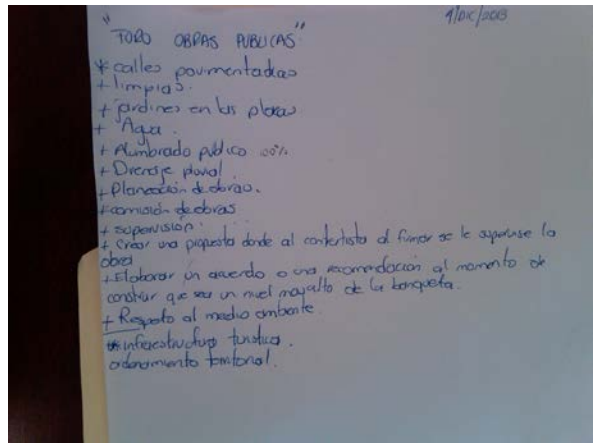 9/DIC/2013
"FORO OBRAS PUBLICAS"
* calles pavimentadas
+ limpias.
+ jardines en las plazas
+ Agua.
+ Alumbrado público
+ Drenaje pluvial.
+ Planeación de obras.
+ comisión de obras
+ supervisión.
+ Crear una propuesta donde al contratista al firmar se le supervise la
obra
+ Elaborar un acuerdo o una recomendación al momento de
construir que sea un nivel mas alto de la banqueta.
+ Respeto al medio ambiente.
* infraestructura turistica.
ordenamiento territorial.